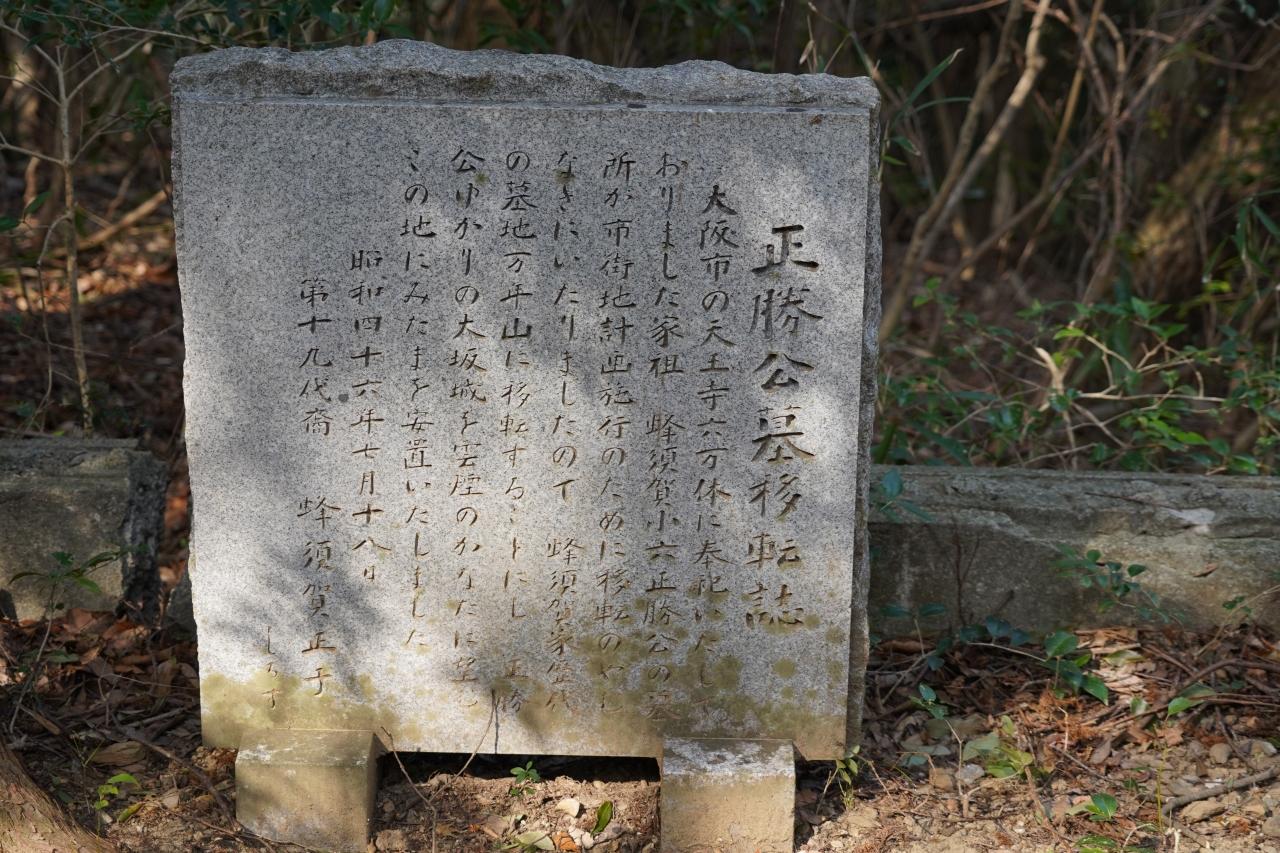 正勝公墓移転誌
大阪市の天王寺六万体に奉祀いたして
おりました家祖 蜂須賀小六正勝公の墓
所が市街地計画施行のために移転のやむ
なきにいたりましたので 蜂須賀家歴代
の墓地万年山に移転することにし 正勝
公ゆかりの大坂城を雲煙のかなたに望む
この地にみたまを安置いたしました
昭和四十六年七月十八日
第十九代裔 蜂須賀正子
しるす